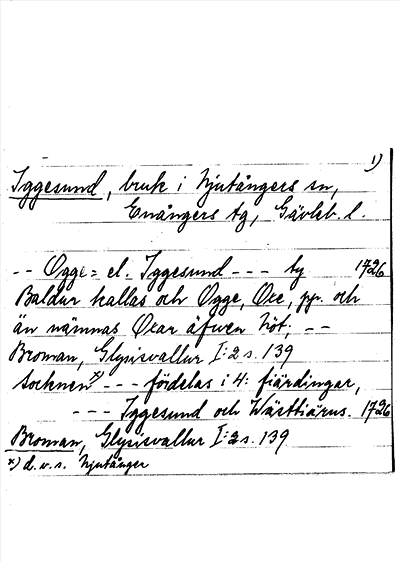 1)
Iggesund, bruk i Njutångers sn,
Enångers tg, Gävleb. l.
-- Ogge= el. Iggesund --- ty 1726
Baldur kallas och Ogge, Oce, pp. och
än nämnas Ocar äfwen höt, --
Broman, Glysisvallur I:2 s. 139
Socknen x) --- fördelas i 4: fiärdingar,
--- Iggesund och Wästtiärns. 1726
Broman, Glysisvallur I:2 s. 139
x) d.v.s. Njutånger